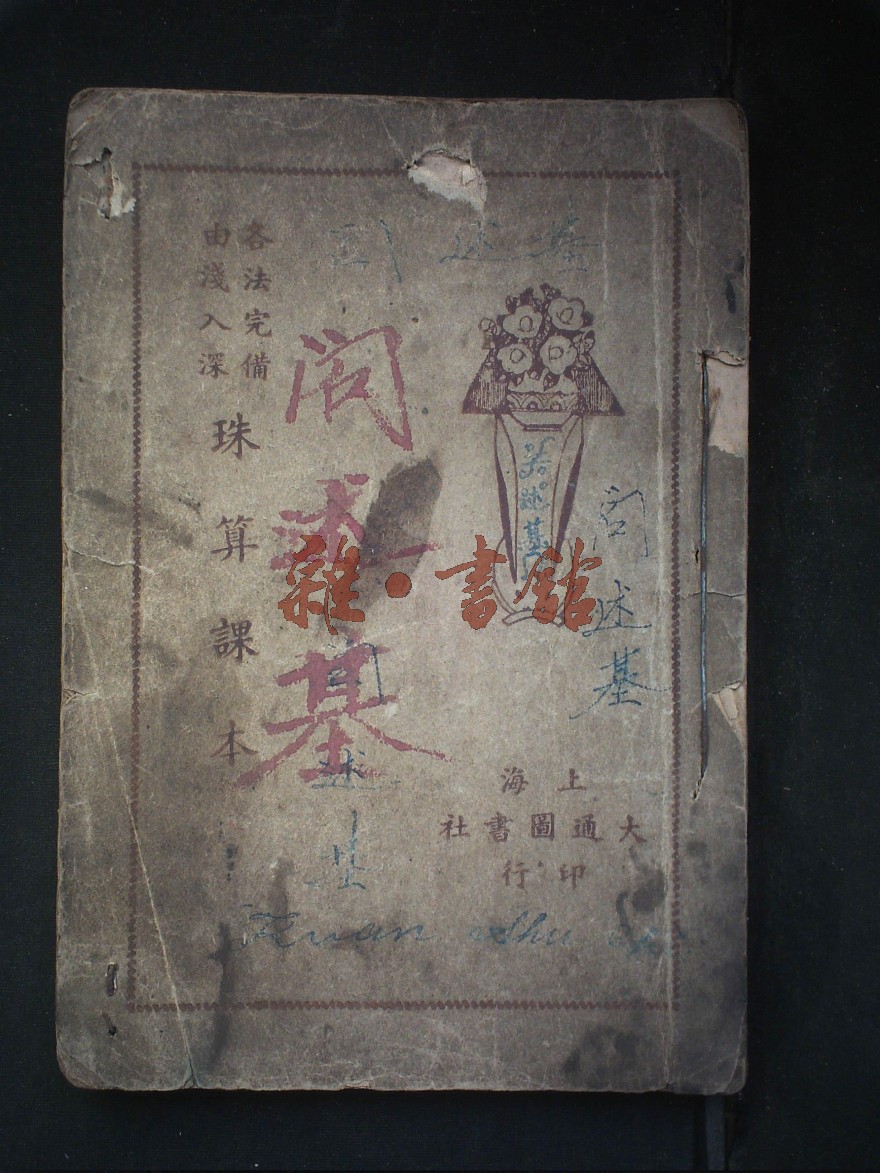 各法完備
由淺入深
珠算課本
上海
大通圖書社
印行
述基
述基
述基
述基
述基
Kwan Shu
雜·書館